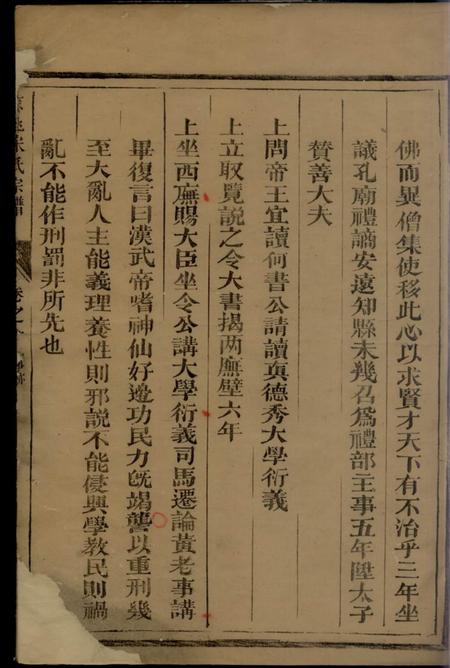 佛而異僧集使移此心以求賢才天下有不治乎三年坐
議孔廟禮謫安遠知縣未幾召爲禮部主事五年陞太子
贊善大夫
上問帝王宜讀何書公請讀真德秀大學衍義
上立取覽說之令大書揭两廡壁六年
上坐西廡賜大臣坐令公講大學衍義司馬遷論黃老事講
畢復言曰漢武帝嗜神仙好邊功民力旣竭襲以重刑幾
至大亂人主能義理養性則邪說不能侵興學教民則禍
亂不能作刑罰非所先也
氏宗譜